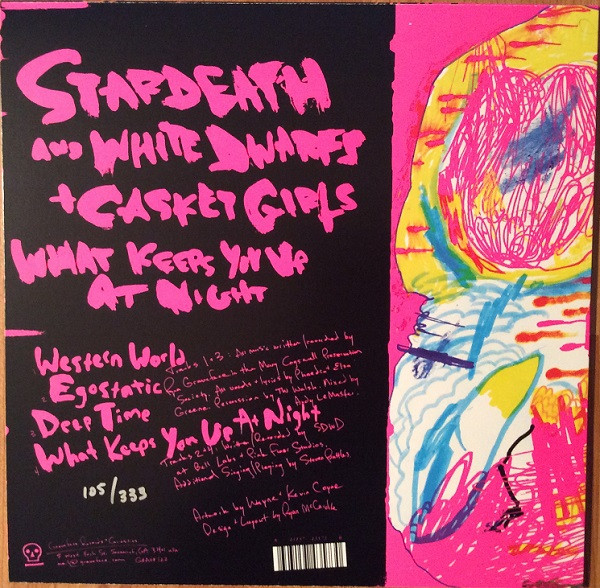 STARDEATH
AND WHITE DWARFS
+ CASKET GIRLS
WHAT KEEPS YOU UP
AT NIGHT
Western World
Egostatic
Deep Time
What Keeps You Up At Night
Tracks 1+3: All music written/recorded by
Ryan Graveface in the Mary Cogswell Preservation
Society. All vocals + lyrics by Phaedra + Elsa
Greene. Percussion by TW Walsh. Mixed by
Andy LeMaster.
Tracks 2+4: Written/Recorded by SDWD
at Bell Labs + Pink Floor Studios.
Additional Singing/Playing by Steven
105/333
Artwork by Wayne + Kevin Coyne
Design + Layout by Ryan McCardle
Graveface Records + Curiosities